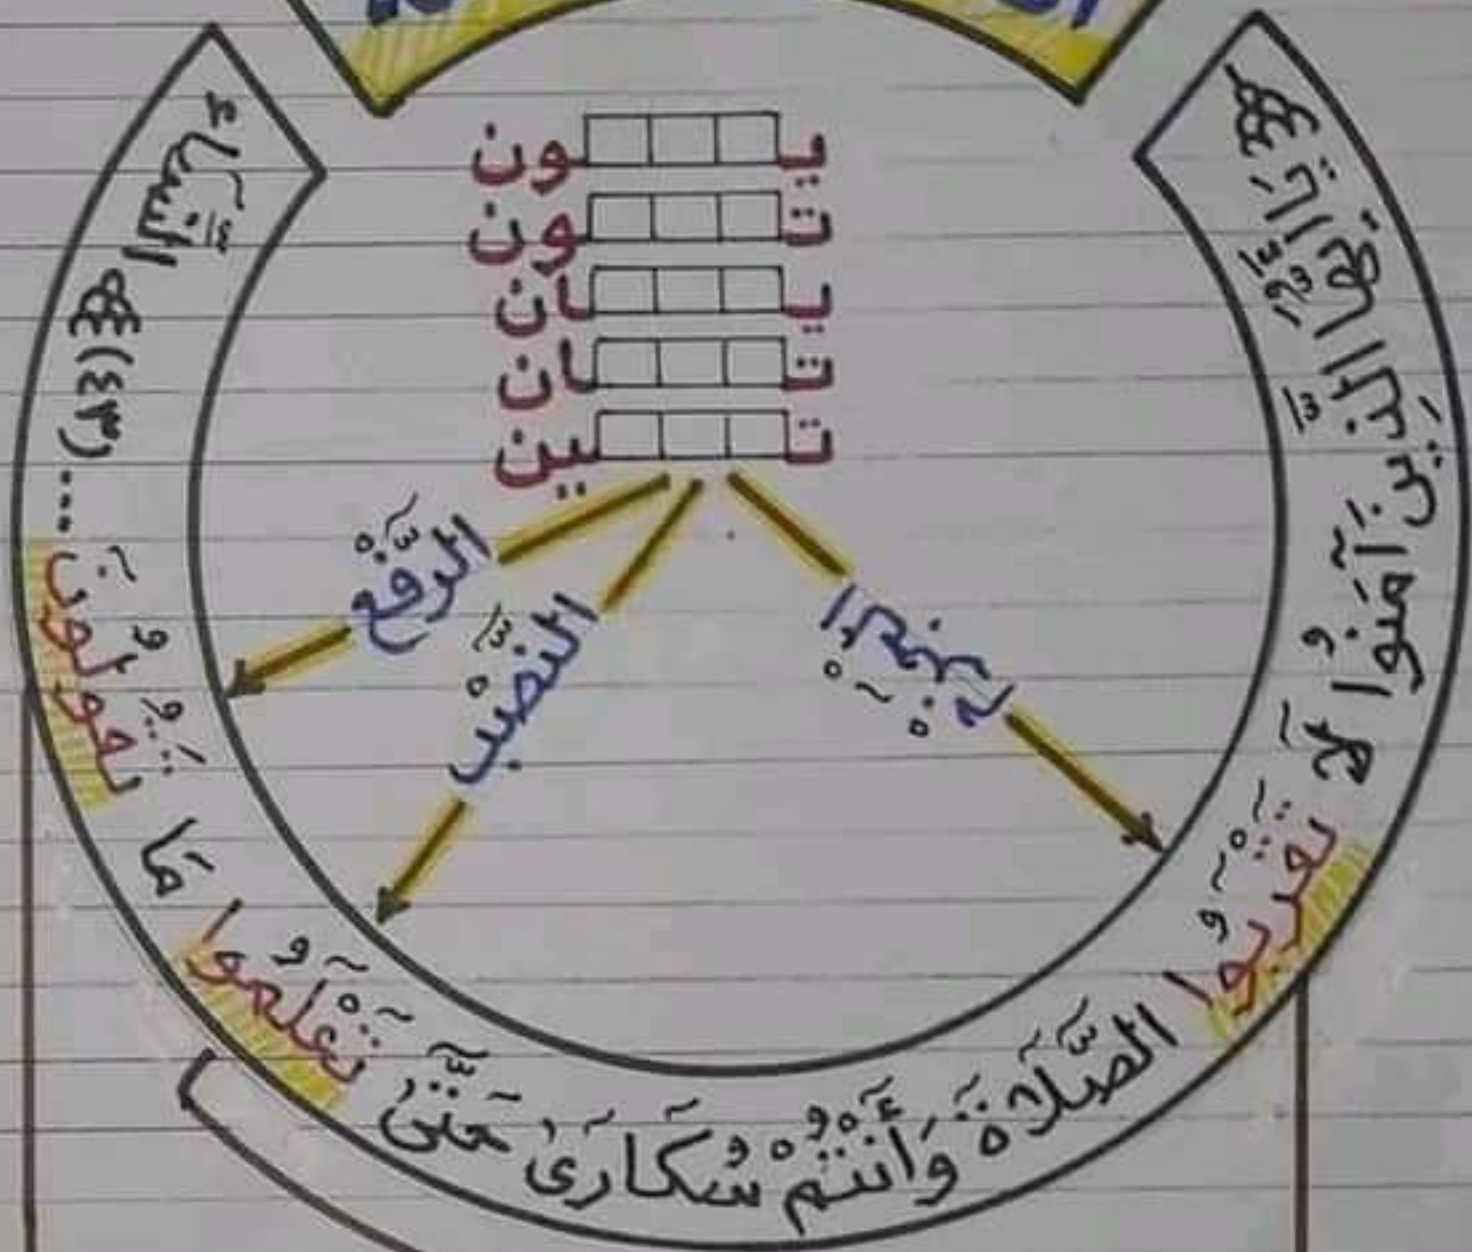 يـ ـون
تـ ـون
يـ ـان
تـ ـان
تـ ـين
الرَّفْع
النَّصْب
الجَزْم
يَا أَيُّهَا الَّذِينَ آمَنُوا لَا تَقْرَبُوا الصَّلَاةَ وَأَنتُمْ سُكَارَىٰ حَتَّىٰ تَعْلَمُوا مَا تَقُولُونَ .... (٤٣) النِّسَاء